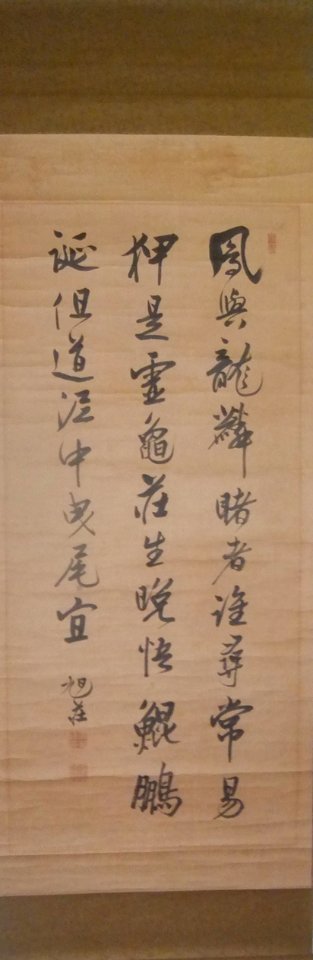 鳳與龍麟睹者誰尋常易
狎是靈龜莊生晚悟鯤鵬
誕但道泥中曳尾宜
旭莊